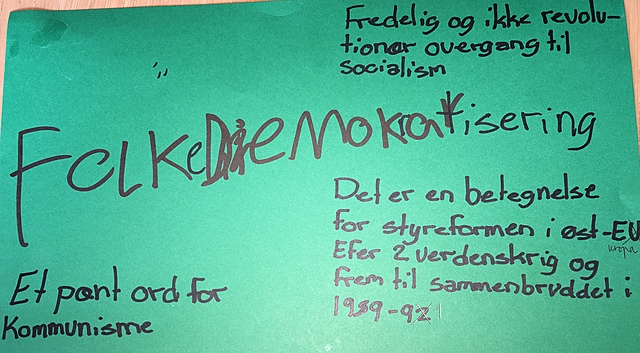 Fredelig og ikke revolu-
tionær overgang til
socialism
FolkeDemokratisering
Det er en betegnelse
for styreformen i øst-EU
uropa
Efer 2 verdenskrig og
frem til sammenbruddet i
1989-92
Et pænt ord for
Kommunisme